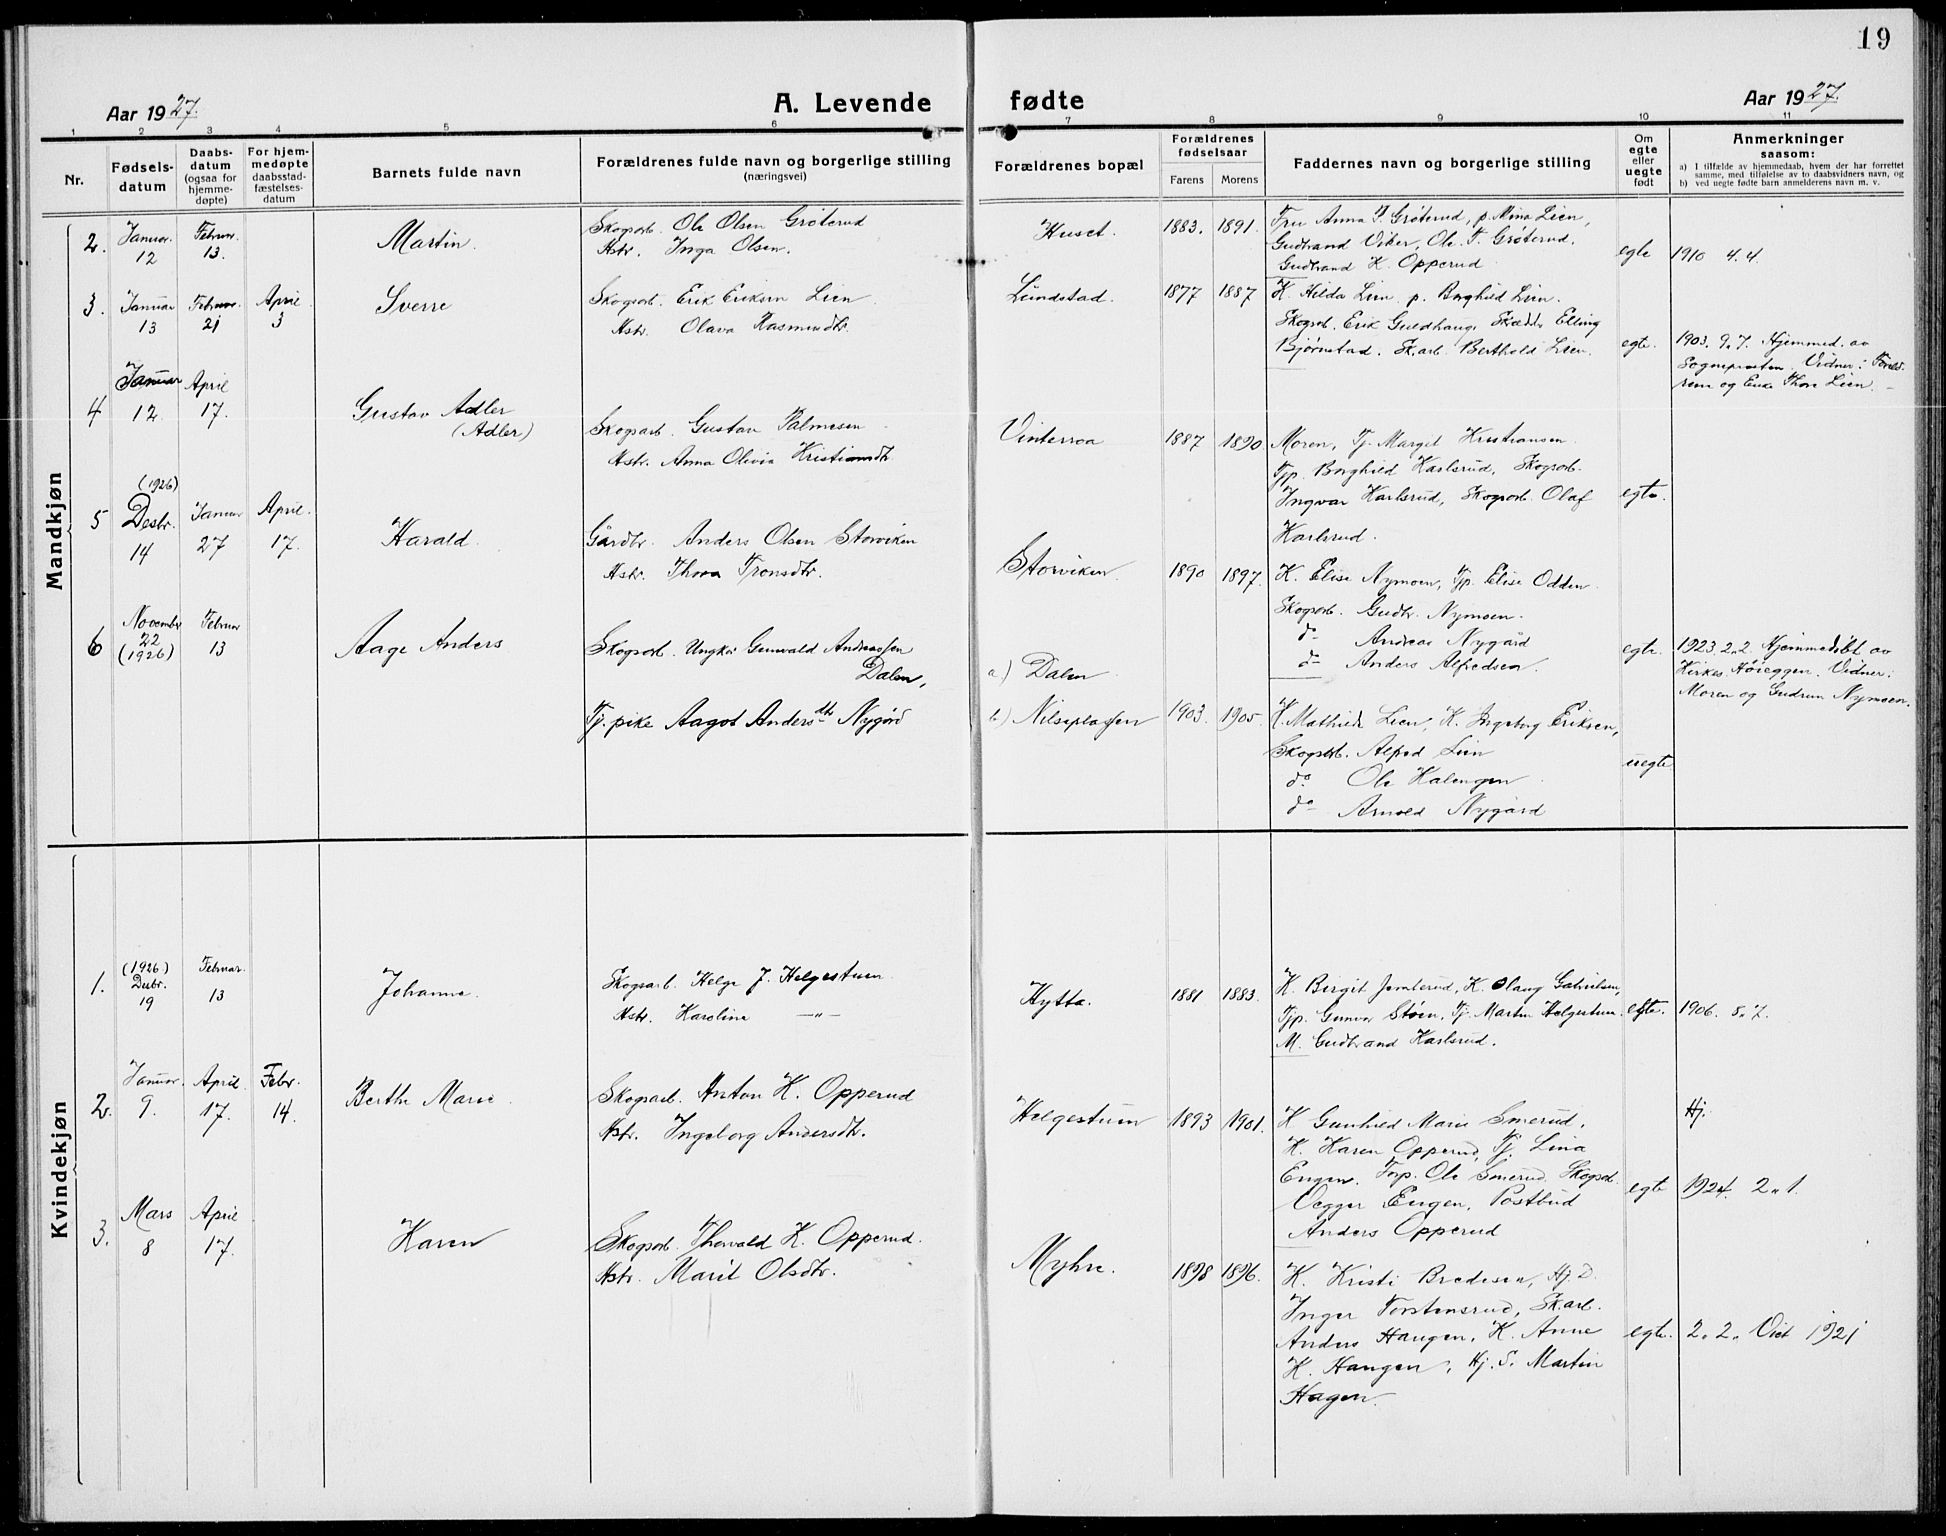 19
Aar 1927.
A. Levende
fødte
Aar 1927.
1 2 3 4 5 6 7 8 9 10 11
Nr.
Fødsels-
datum
Daabs-
datum
(ogsaa for
hjemme-
døpte)
For hjem-
medøpte
daabsstad-
fæstelses-
datum
Barnets fulde navn
Forældrenes fulde navn og borgerlige stilling
(næringsvei)
Forældrenes bopæl
Forældrenes
fødselsaar
Farens Morens
Faddernes navn og borgerlige stilling
Om
egte
eller
uegte
født
Anmerkninger
saasom:
a) I tilfælde av hjemmedaab, hvem der har forrettet
samme, med tilføielse av to daabsvidners navn, og
b) ved uegte fødte barn anmelderens navn m. v.
Mandkjøn
2. Januar. 12 Februr. 13. Martin.
Skogsarb. Ole Olsen Grøterud
Hstr. Inga Olsen.
Huset. 1883. 1891.
Fru Anna P. Grøterud, p. Mina Lien,
Gudbrand Viker, Ole T. Grøterud.
Gudbrand K. Opperud
egte 1910 4.4.
3. Januar 13 Februar 21 April 3 Sverre
Skogsarb. Erik Eriksen Lien.
Hstr. Olava Rasmusdtr.
Lundstad. 1877 1887
K. Hilda Lien p. Borghild Lien.
Skogsb. Erik Guldhaug, Skædder Elling
Bjørnstad. Sk.arb. Berthold Lien.
egte.
1903. 9.7. Hjemmed. av
Sognepresten. Vidner: Foreld-
rene og Enke Thore Lien.
4 Januar 12. April 17. Gustav Adler
(Adler)
Skogsarb. Gustav Palmesen
Hstr. Anna Olivia Kristiansdtr.
Vinterroa 1887 1890
Moren, Tj. Margit Kristiansen.
Tjp. Borghild Karlsrud, Skogsarb.
Ingvar Karlsrud, Skogsarb. Olaf
Karlsrud.
egte.
5 (1926) Desbr. 14 Januar 27 April. 17. Harald.
Gårdbr. Anders Olsen Storviken
Hstr. Thora Tronsdtr.
Storviken. 1890 1897.
K. Elise Nymoen, Tjp. Elise Odden.
Skogsarb. Gudbr. Nymoen.
do Andreas Nygård
do Anders Alfredsen.
egte.
1923 2.2. Hjemmedøbt av
Kirkes. Høieggen. Vidner:
Moren og Gudrun Nymoen.
6 November 22 (1926) Februar 13 Aage Anders
Skogsarb. Ungkar Gunvald Andreassen
Dalen,
Tj. pike Aagot Andersdtr. Nygård
a) Dalen
b) Nilseplassen 1903. 1905.
K. Mathilde Lien, K. Ingeborg Eriksen,
Skogsarb. Alfred Lien
do Ole Kalengen
do Arnold Nygård
uegte
Kvindekjøn
1. (1926) Desbr. 19 Februar. 13 Johanne.
Skogsarb. Helge J. Helgestuen
Hstr. Karoline —„—
Hytta. 1881 1883.
K. Birgit Jomterud, K. Olaug Gabrielsen,
Tjp. Gunvor Støen, Tj. Martin Helgestuen.
M. Gudbrand Karlsrud.
egte. 1906. 8.7.
2. Januar. 9. April. 17. Febr. 14. Berthe Marie.
Skogsarb. Anton K. Opperud
Hstr. Ingeborg Andersdtr.
Helgestuen 1893 1901.
K Gunhild Marie Smerud.
K. Karen Opperud, Tj. Lina
Engen. Forp. Ole Smerud. Skogsarb.
Vegger Engen, Postbud
Anders Opperud
Hj.
egte 1924. 2.1.
3. Mars 8 April 17. Karen
Skogsarb. Thorvald K. Opperud.
Hstr. Marit Olsdtr.
Myhre. 1898 1896.
K. Kristi Bredesen, Hj. D.
Inger Torstensrud, Sk.arb.
Anders Haugen, K. Anne
K. Haugen, Hj. S. Martin
Hagen.
egte. 2. 2. Viet 1921